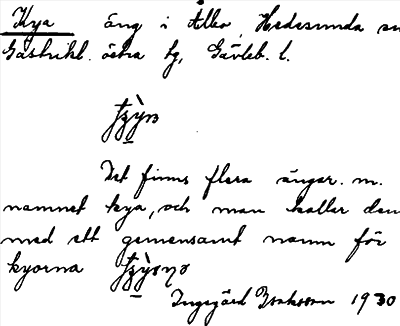 Kya äng i Ålbo, Hedesunda sn
Gästrikl. östra tg, Gävleb. l.
Det finns flera ängar. m.
namnet kya, och man kallar dem
med ett gemensamt namn för
kyorna
Ingegärd 1930